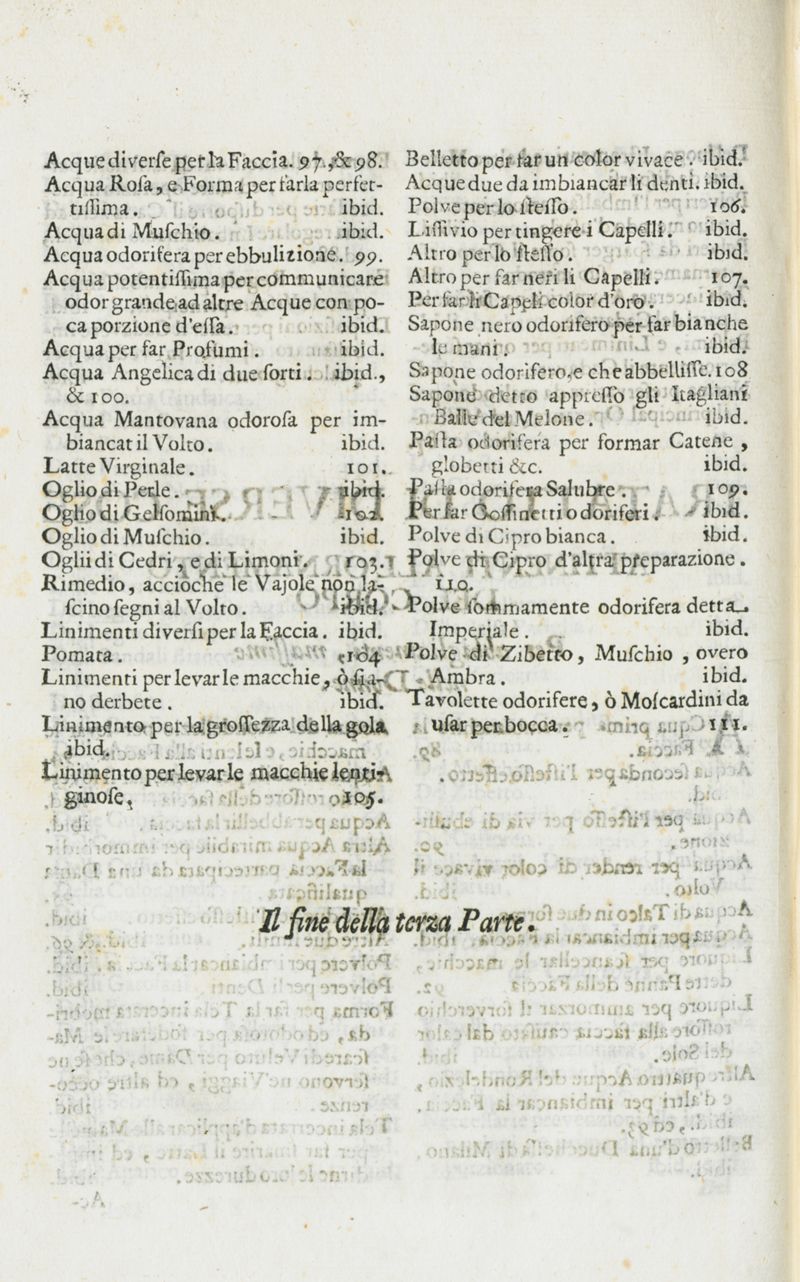 Acque diverſe per la Faccia. 97. & 98.
Acqua Roſa, e Forma per farla perfet-
tiſſima. ibid.
Acqua di Muſchio. ibid.
Acqua odorifera per ebbulizione. 99.
Acqua potentiſſima per communicare
odor grande ad altre Acque con po-
ca porzione d'eſſa. ibid.
Acqua per far Profumi. ibid.
Acqua Angelica di due ſorti. ibid.,
& 100.
Acqua Mantovana odoroſa per im-
biancat il Volto. ibid.
Latte Virginale. 101.
Oglio di Perle. ibid.
Oglio di Gelſomini. 102.
Oglio di Muſchio. ibid.
Oglii di Cedri, e di Limoni. 103.
Rimedio, acciòche le Vajole non la-
ſcino ſegni al Volto. ibid.
Linimenti diverſi per la Faccia. ibid.
Pomata. 104
Linimenti per levar le macchie, ò ſia-
no derbete. ibid.
Linimento per la groſſezza della gola
ibid.
Linimento per levar le macchie lenti-
ginoſe, 105.
Belletto per far un color vivace. ibid.
Acque due da imbiancar li denti. ibid.
Polve per lo ſteſſo. 106.
Liſſivio per tingere i Capelli. ibid.
Altro per lo ſteſſo. ibid.
Altro per far neri li Capelli. 107.
Per far li Capeli color d'oro. ibid.
Sapone nero odorifero per far bianche
le mani. ibid.
Sapone odorifero, e che abbelliſſe. 108
Sapone detto appreſſo gli Itagliani
Balle del Melone. ibid.
Paſta odorifera per formar Catene,
globetti &c. ibid.
Paſta odorifera Salubre. 109.
Per far Coſſinetti odoriferi. ibid.
Polve di Cipro bianca. ibid.
Polve di Cipro d'altra preparazione.
110.
Polve ſommamente odorifera detta
Imperiale. ibid.
Polve di Zibetto, Muſchio, overo
Ambra. ibid.
Tavolette odorifere, ò Moſcardini da
uſar per bocca. 111.
Il fine della terza Parte.